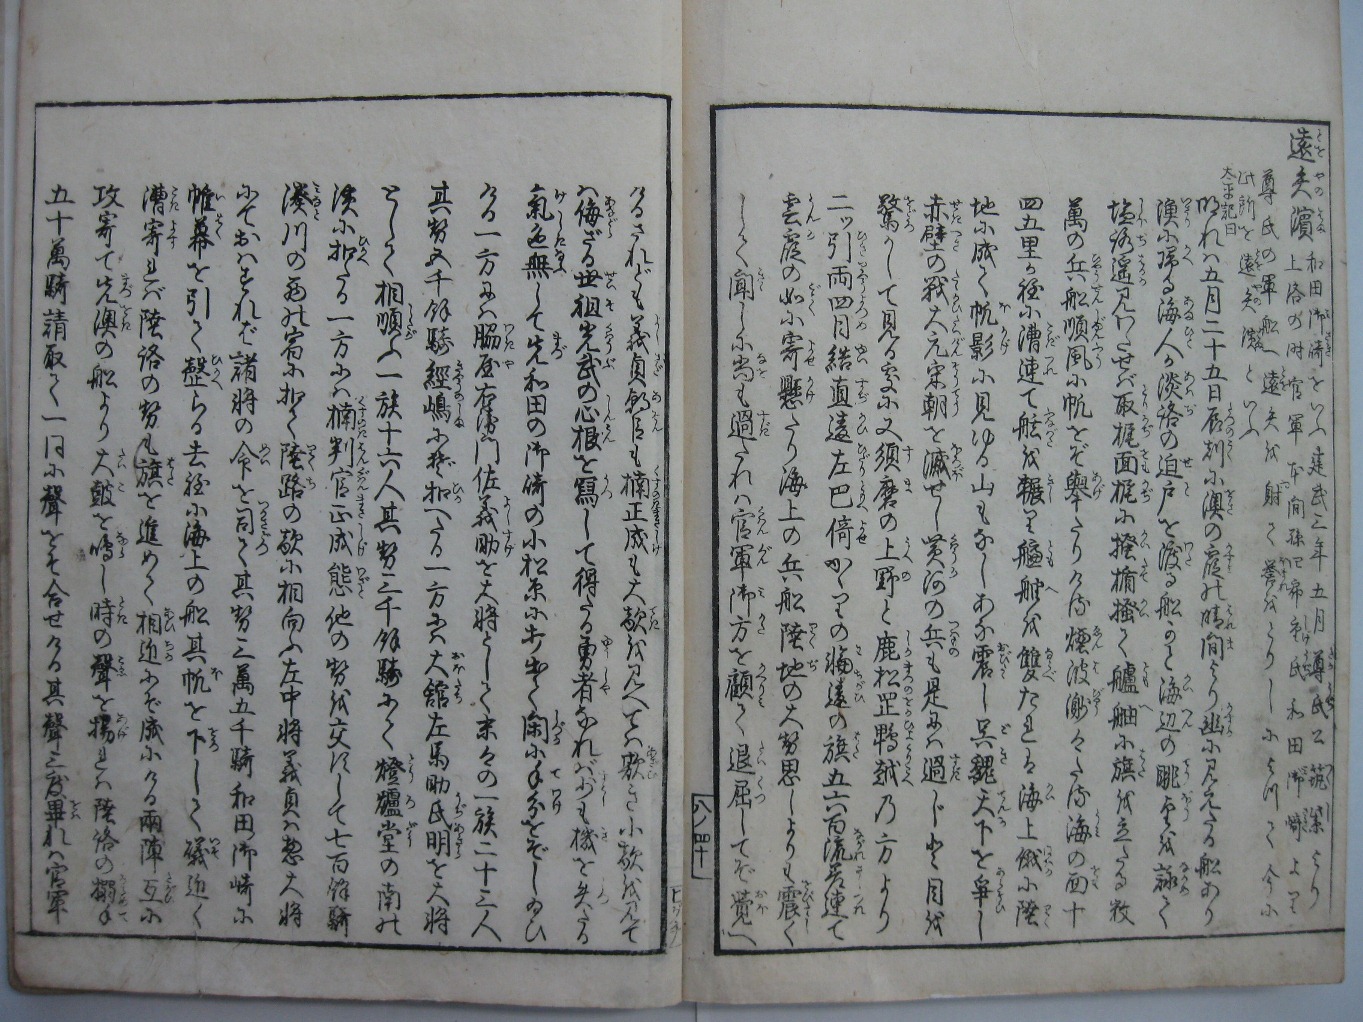 遠矢濱 和田御崎をいふ建武三年五月尊氏公筑紫より
上洛の時官軍本間孫四郎重氏和田御崎より
尊氏の軍船へ遠矢を射て誉をとりしによつて今に
此所を遠矢濱といふ
太平記曰
明れば五月二十五日辰刻に澳の霞の晴間より幽に見えたる船あり
漁に帰る海人か淡路の迫戸を渡る船かと海辺の眺望を詠て
塩路遥に見わたせば取梶面梶に掻楯掻て艫舳に旗を立たる数
萬の兵船順風に帆をぞ挙たりける煙波渺々たる海の面十
四五里が程に漕連て舷を輾り艫舳を雙たれば海上俄に陸
地に成て帆影に見ゆる山もなしあな震し呉魏天下を争し
赤壁の戦大元宋朝を滅せし黄河の兵も是には過じと目を
驚かして見る処に又須磨の上野と鹿松岡鵯越の方より
二ッ引両四目結直違左巴倚かゝりの輪違の旗五六百流差連て
雲霞の如に寄懸たり海上の兵船陸地の大勢思しよりも震く
して聞しにも過たれば官軍御方を顧て退屈してぞ覚へ
ける されども義貞朝臣も楠正成も大敵を見ては欺き小敵を見て
は侮ざる世祖光武の心根を写して得たる勇者なればがも機を失たる
氣色無して先和田の御崎の小松原に打出て閑に手分をぞしたまひ
ける一方には脇屋右衛門佐義助を大将として末々の一族二十三人
其勢五千餘騎經嶋にぞ扣へたる一方には大舘左馬助氏明を大将
として相順ふ一族十六人其勢三千餘騎にて燈爐堂の南の
濱に扣たる一方には楠判官正成態他の勢を交ずして七百餘騎
湊川の西の宿に扣て陸路の敵に相向ふ左中将義貞は惣大将
にておはすれば諸将の命を司て其勢三萬五千騎和田御崎に
帷幕を引て整らる去程に海上の船其帆を下して磯近く
漕寄すれば陸路の勢も旗を進めて相近にぞ成にける兩陣互に
攻寄て先澳の船より大皷を鳴し時の聲を揚れは陸路の搦手
五十萬騎請取て一同に聲をぞ合せける其聲三度畢れは官軍
八ノ四十